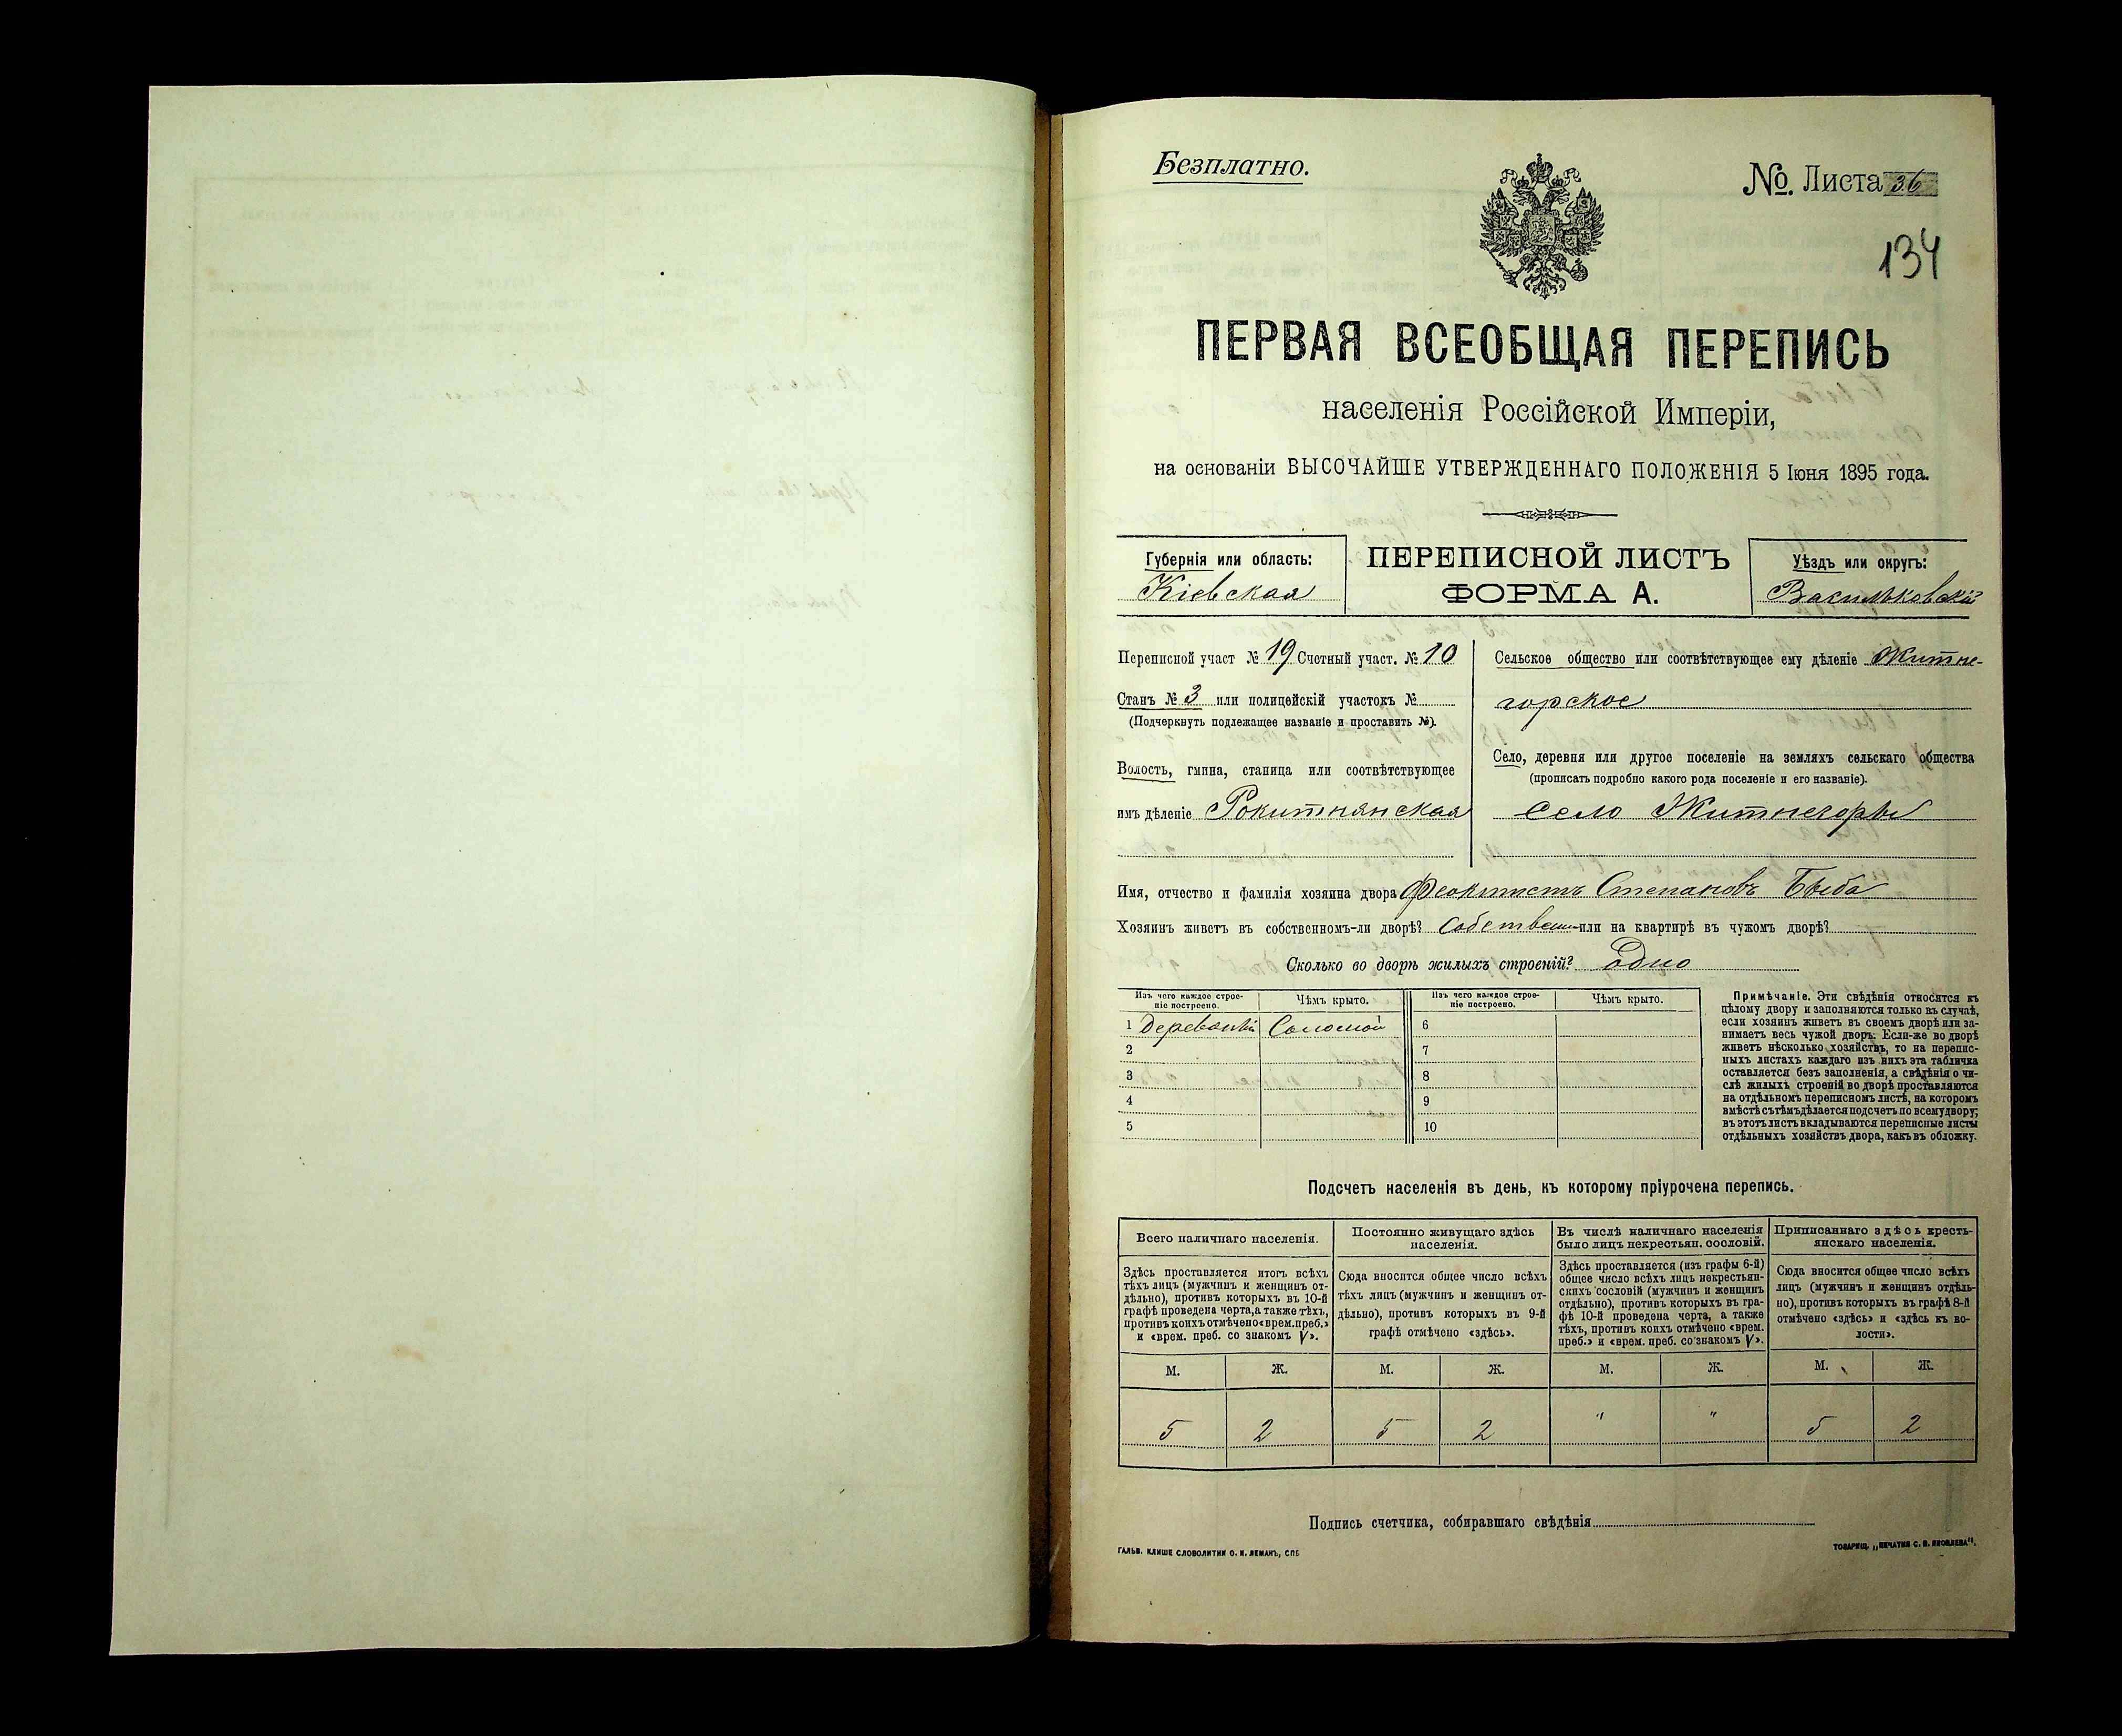 Безплатно.
№. Листа 36
134
ПЕРВАЯ ВСЕОБЩАЯ ПЕРЕПИСЬ
населенія Россійской Имперіи,
на основаніи ВЫСОЧАЙШЕ УТВЕРЖДЕННАГО ПОЛОЖЕНІЯ 5 Іюня 1895 года.
Губернія или область:
Кіевская
ПЕРЕПИСНОЙ ЛИСТЪ
ФОРМА А.
Уѣздъ или округъ:
Васильковскій
Переписной участ № 19 Счетный участ. № 10
Станъ № 3 или полицейскій участокъ №
(Подчеркнуть подлежащее названіе и проставить №).
Волость, гмина, станица или соотвѣтствующее
имъ дѣленіе Рокитнянская
Сельское общество или соотвѣтствующее ему дѣленіе Житне-
горское
Село, деревня или другое поселеніе на земляхъ сельскаго общества
(прописать подробно какого рода поселеніе и его названіе).
Село Житнегоры
Имя, отчество и фамилія хозяина двора Феоктистъ Степановъ Быба
Хозяинъ живетъ въ собственномъ-ли дворѣ? Собствен или на квартирѣ въ чужомъ дворѣ?
Сколько во дворѣ жилыхъ строеній? Одно
Изъ чего каждое строе-
ніе построено.
Чѣмъ крыто.
Изъ чего каждое строе-
ніе построено.
Чѣмъ крыто.
1 Соломой 6
2 7
3 8
4 9
5 10
Примѣчаніе. Эти свѣдѣнія относятся къ
цѣлому двору и заполняются только въ случаѣ,
если хозяинъ живетъ въ своемъ дворѣ или за-
нимаетъ весь чужой дворъ. Если-же во дворѣ
живетъ нѣсколько хозяйствъ, то на перепис-
ныхъ листахъ каждаго изъ нихъ эта табличка
оставляется безъ заполненія, а свѣдѣнія о чи-
слѣ жилыхъ строеній во дворѣ проставляются
на отдѣльномъ переписномъ листѣ, на которомъ
вмѣстѣ сътѣмъ дѣлается подсчетъ по всему двору;
въ этотъ листъ вкладываются переписные листы
отдѣльныхъ хозяйствъ двора, какъ въ обложку.
Подсчетъ населенія въ день, къ которому пріурочена перепись.
Всего наличнаго населенія.
Здѣсь проставляется итогъ всѣхъ
тѣхъ лицъ (мужчинъ и женщинъ от-
дѣльно), противъ которыхъ въ 10-й
графѣ проведена черта, а также тѣхъ,
противъ коихъ отмѣчено «врем. преб.»
и «врем. преб. со знакомъ V».
Постоянно живущаго здѣсь
населенія.
Сюда вносится общее число всѣхъ
тѣхъ лицъ (мужчинъ и женщинъ от-
дѣльно), противъ которыхъ въ 9-й
графѣ отмѣчено «здѣсь».
Въ числѣ наличнаго населенія
было лицъ некрестьян. сословій.
Здѣсь проставляется (изъ графы 6-й)
общее число всѣхъ лицъ некрестьян-
скихъ сословій (мужчинъ и женщинъ
отдѣльно), противъ которыхъ въ гра-
фѣ 10-й проведена черта, а также
тѣхъ, противъ коихъ отмѣчено «врем.
преб.» и «врем. преб. со знакомъ V».
Приписаннаго здѣсь кресть-
янскаго населенія.
Сюда вносится общее число всѣхъ
лицъ (мужчинъ и женщинъ отдѣль-
но), противъ которыхъ въ графѣ 8-й
отмѣчено «здѣсь» и «здѣсь къ во-
лости».
М. Ж. М. Ж. М. Ж. М. Ж.
5 2 5 2 " " 5 2
Подпись счетчика, собиравшаго свѣдѣнія
ГАЛЬВ. КЛИШЕ СЛОВОЛИТНИ О. И. ЛЕМАНЪ, СПБ
ТОВАРИЩ. „ПЕЧАТНЯ С. П. ЯКОВЛЕВА“.